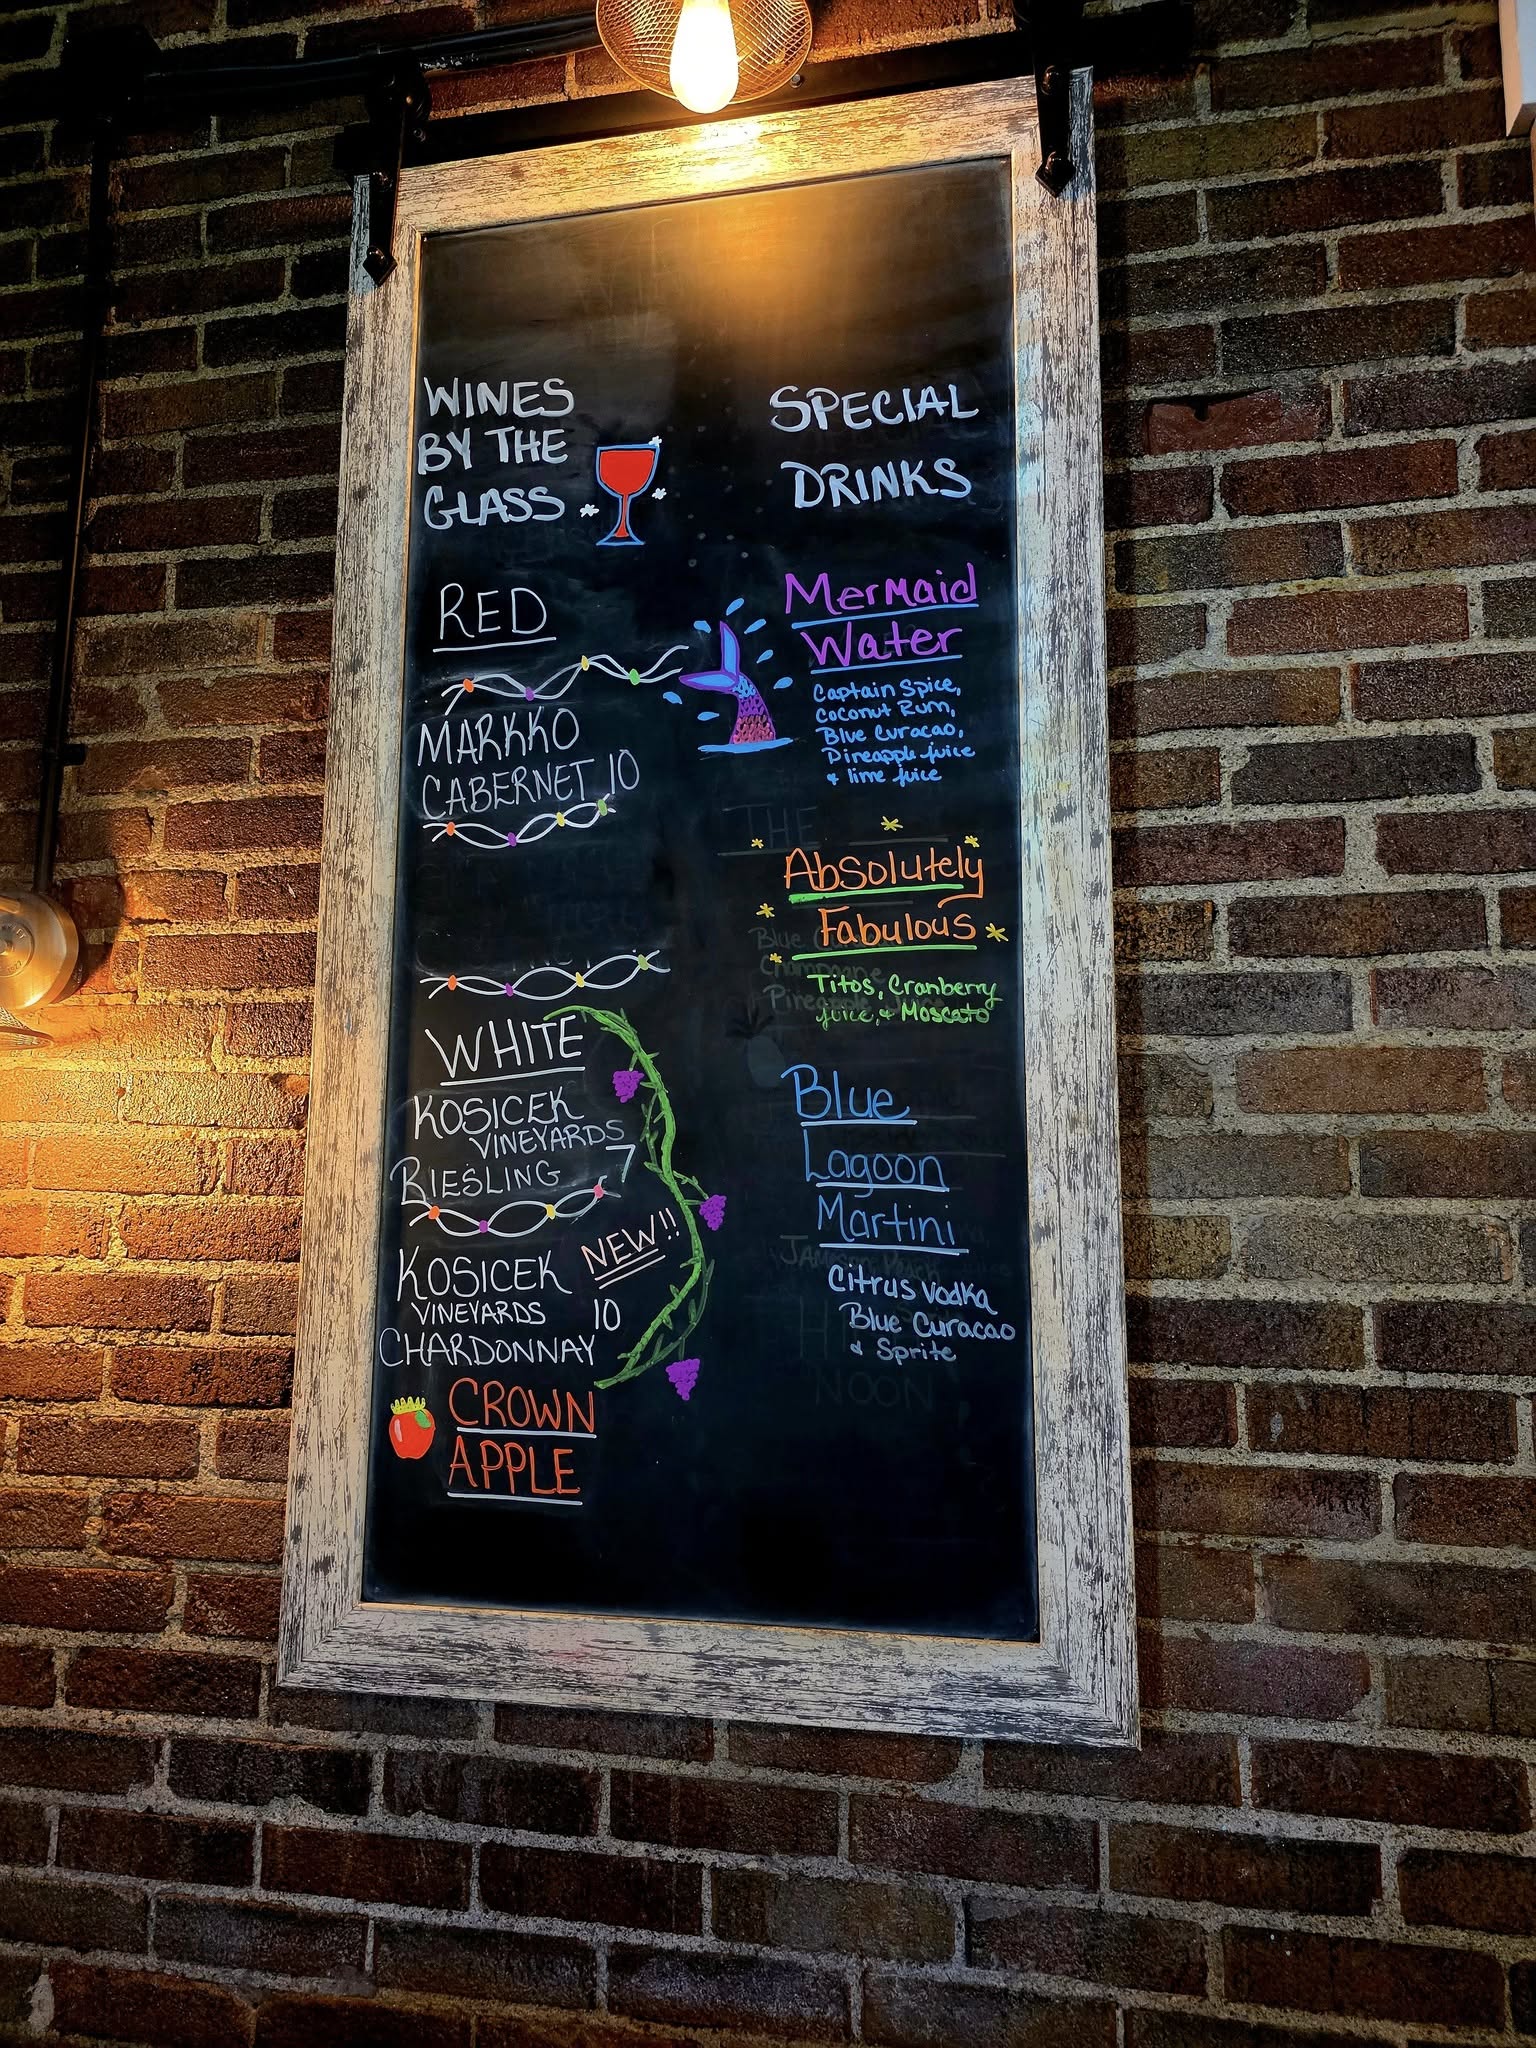 WINES
BY THE
GLASS
RED
MARKKO
CABERNET 10
WHITE
KOSICEK
VINEYARDS
RIESLING 7
NEW!!
KOSICEK
VINEYARDS 10
CHARDONNAY
CROWN
APPLE
SPECIAL
DRINKS
Mermaid
Water
Captain Spice,
Coconut Rum,
Blue Curacao,
Pineapple juice
& lime juice
THE
Absolutely
Fabulous
Titos, Cranberry
juice, & Moscato
Blue
Champagne
Pineapple
Blue
Lagoon
Martini
Citrus Vodka
Blue Curacao
& Sprite
NOON